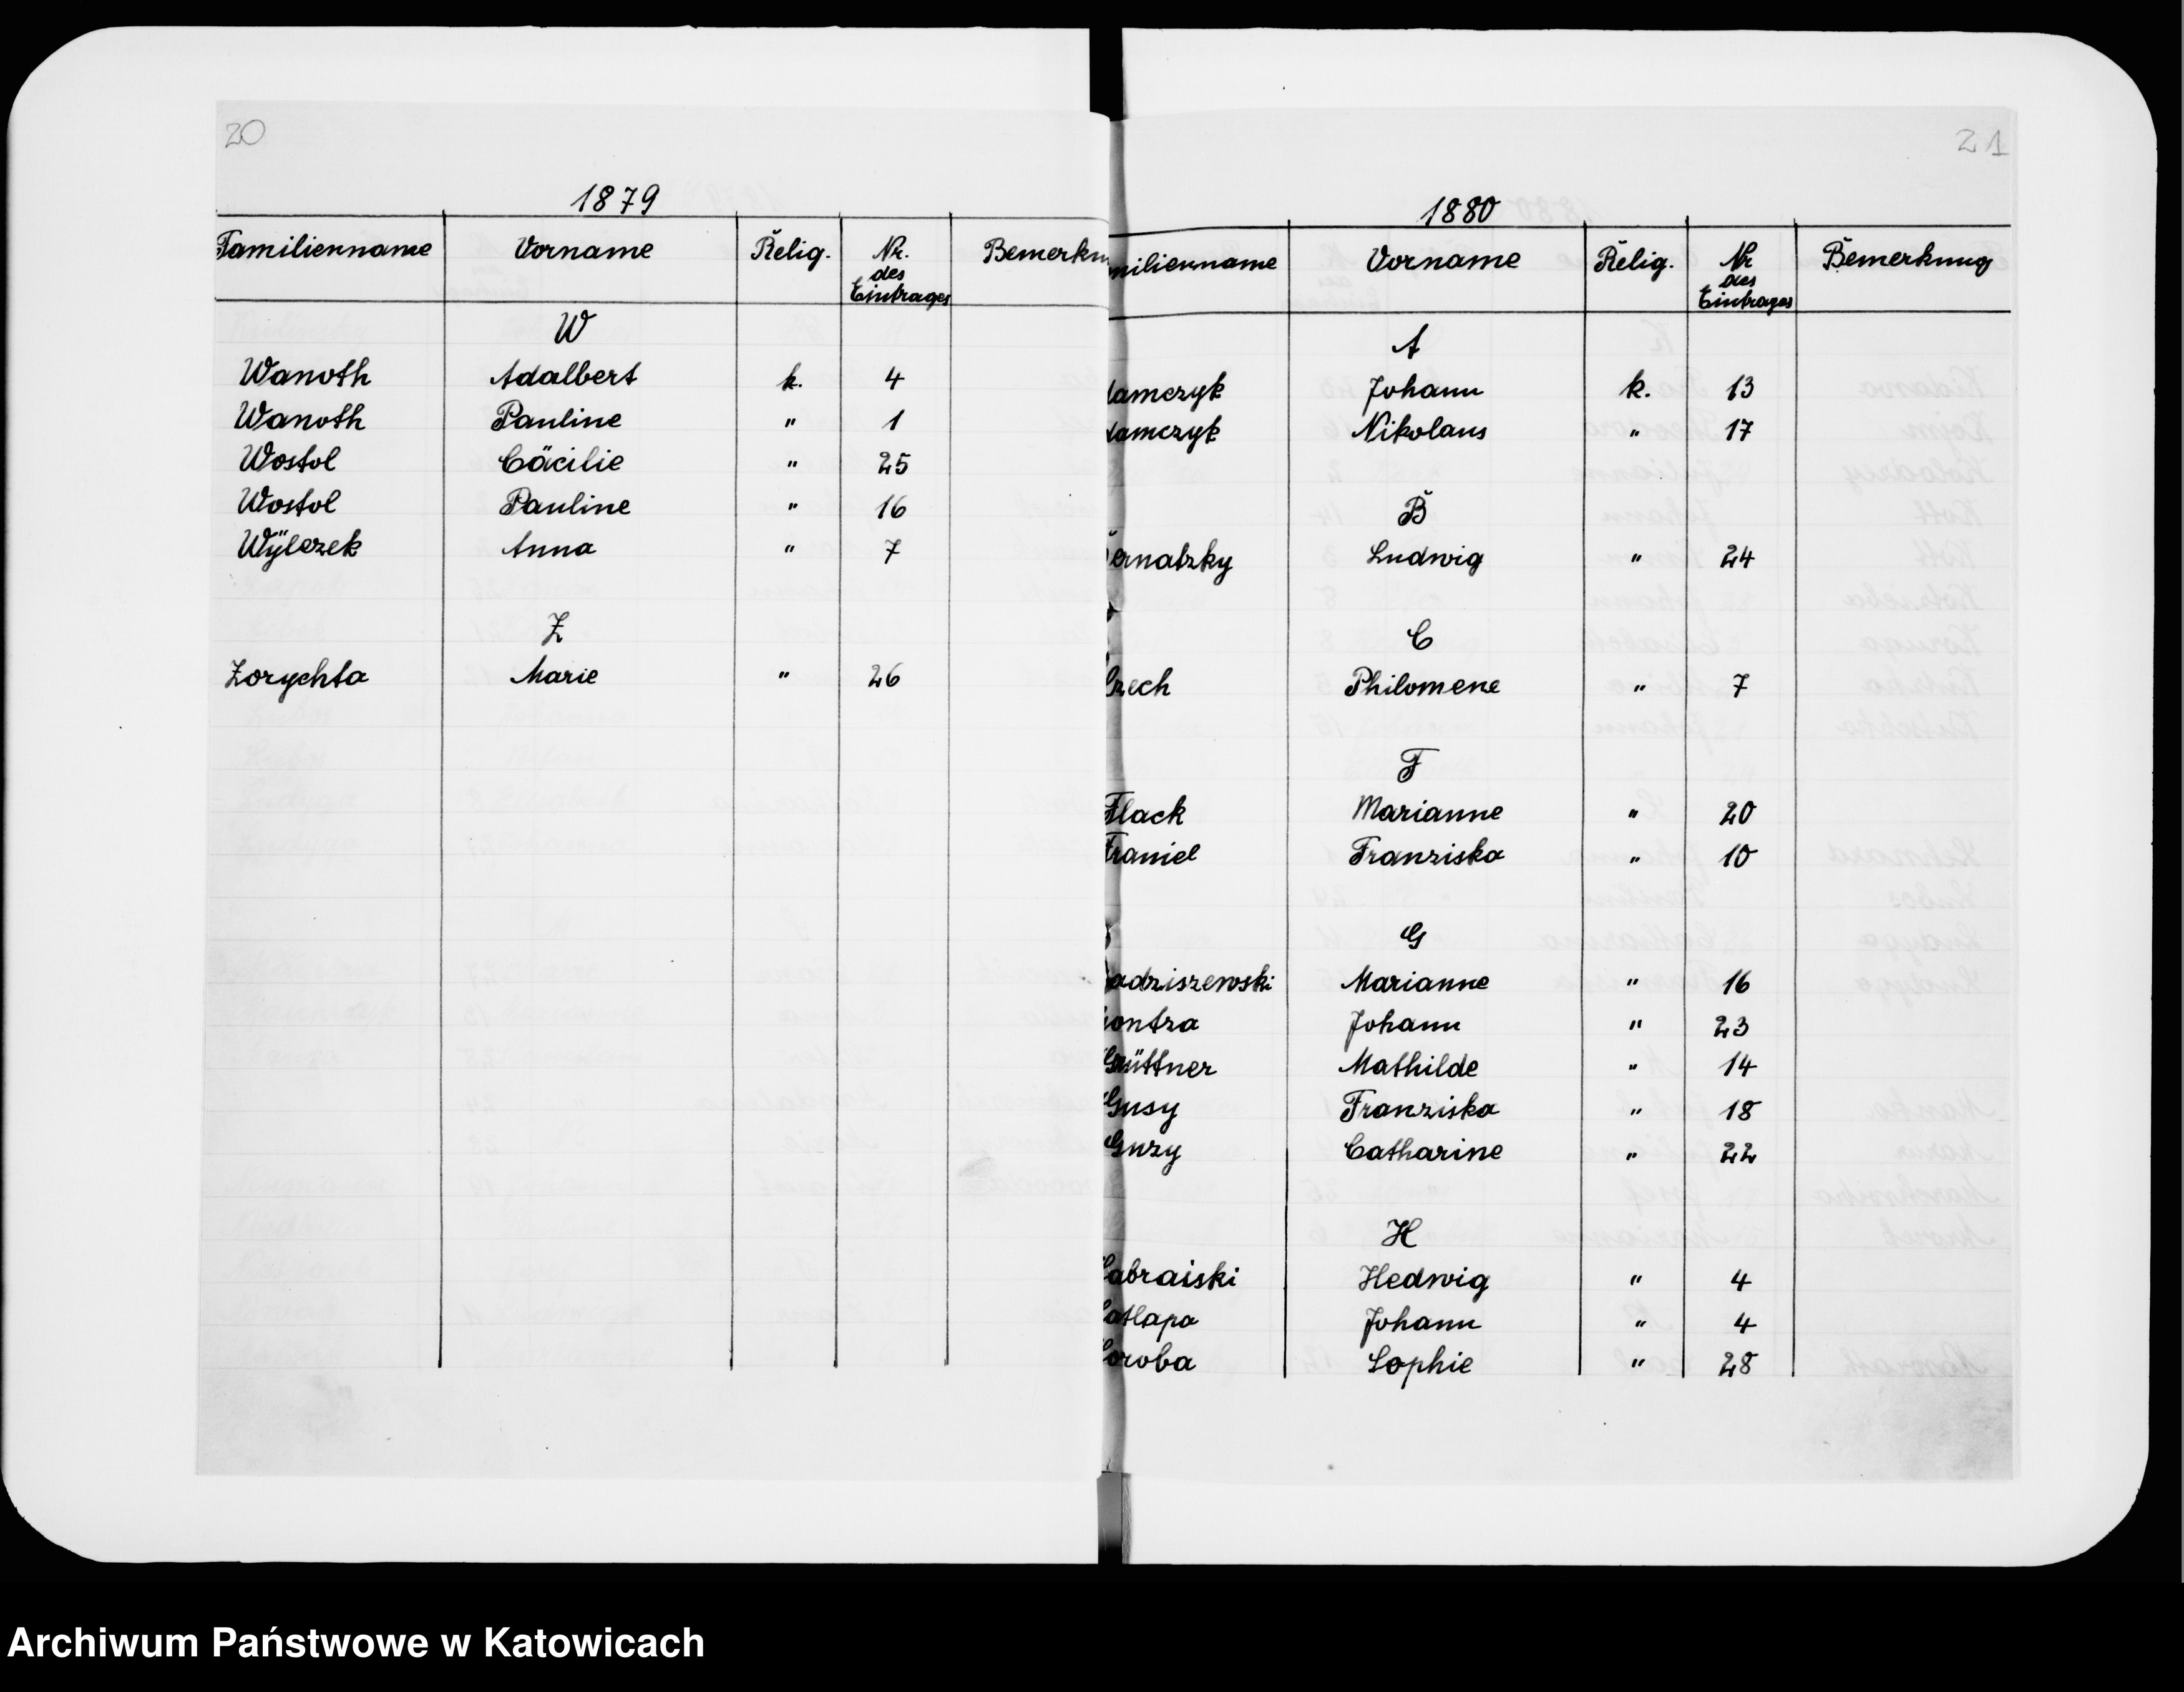 20
1879
Familienname Vorname Relig. Nr. des Eintrages Bemerkun
W
Wanoth Adalbert k. 4
Wanoth Pauline " 1
Wostol Cäcilie " 25
Wostol Pauline " 16
Wÿlezek Anna " 7
Z
Zorychta Marie " 26
21
1880
milienname Vorname Relig. Nr des Eintrages Bemerkung
A
damczyk Johann k. 13
damczyk Nikolaus " 17
B
ernatzky Ludwig " 24
C
Czech Philomene " 7
F
Flack Marianne " 20
Franiel Franziska " 10
G
adziszewski Marianne " 16
ontza Johann " 23
Grüttner Mathilde " 14
Gusy Franziska " 18
Guzy Catharine " 22
H
abraiski Hedwig " 4
atlapa Johann " 4
oroba Sophie " 28
Archiwum Państwowe w Katowicach